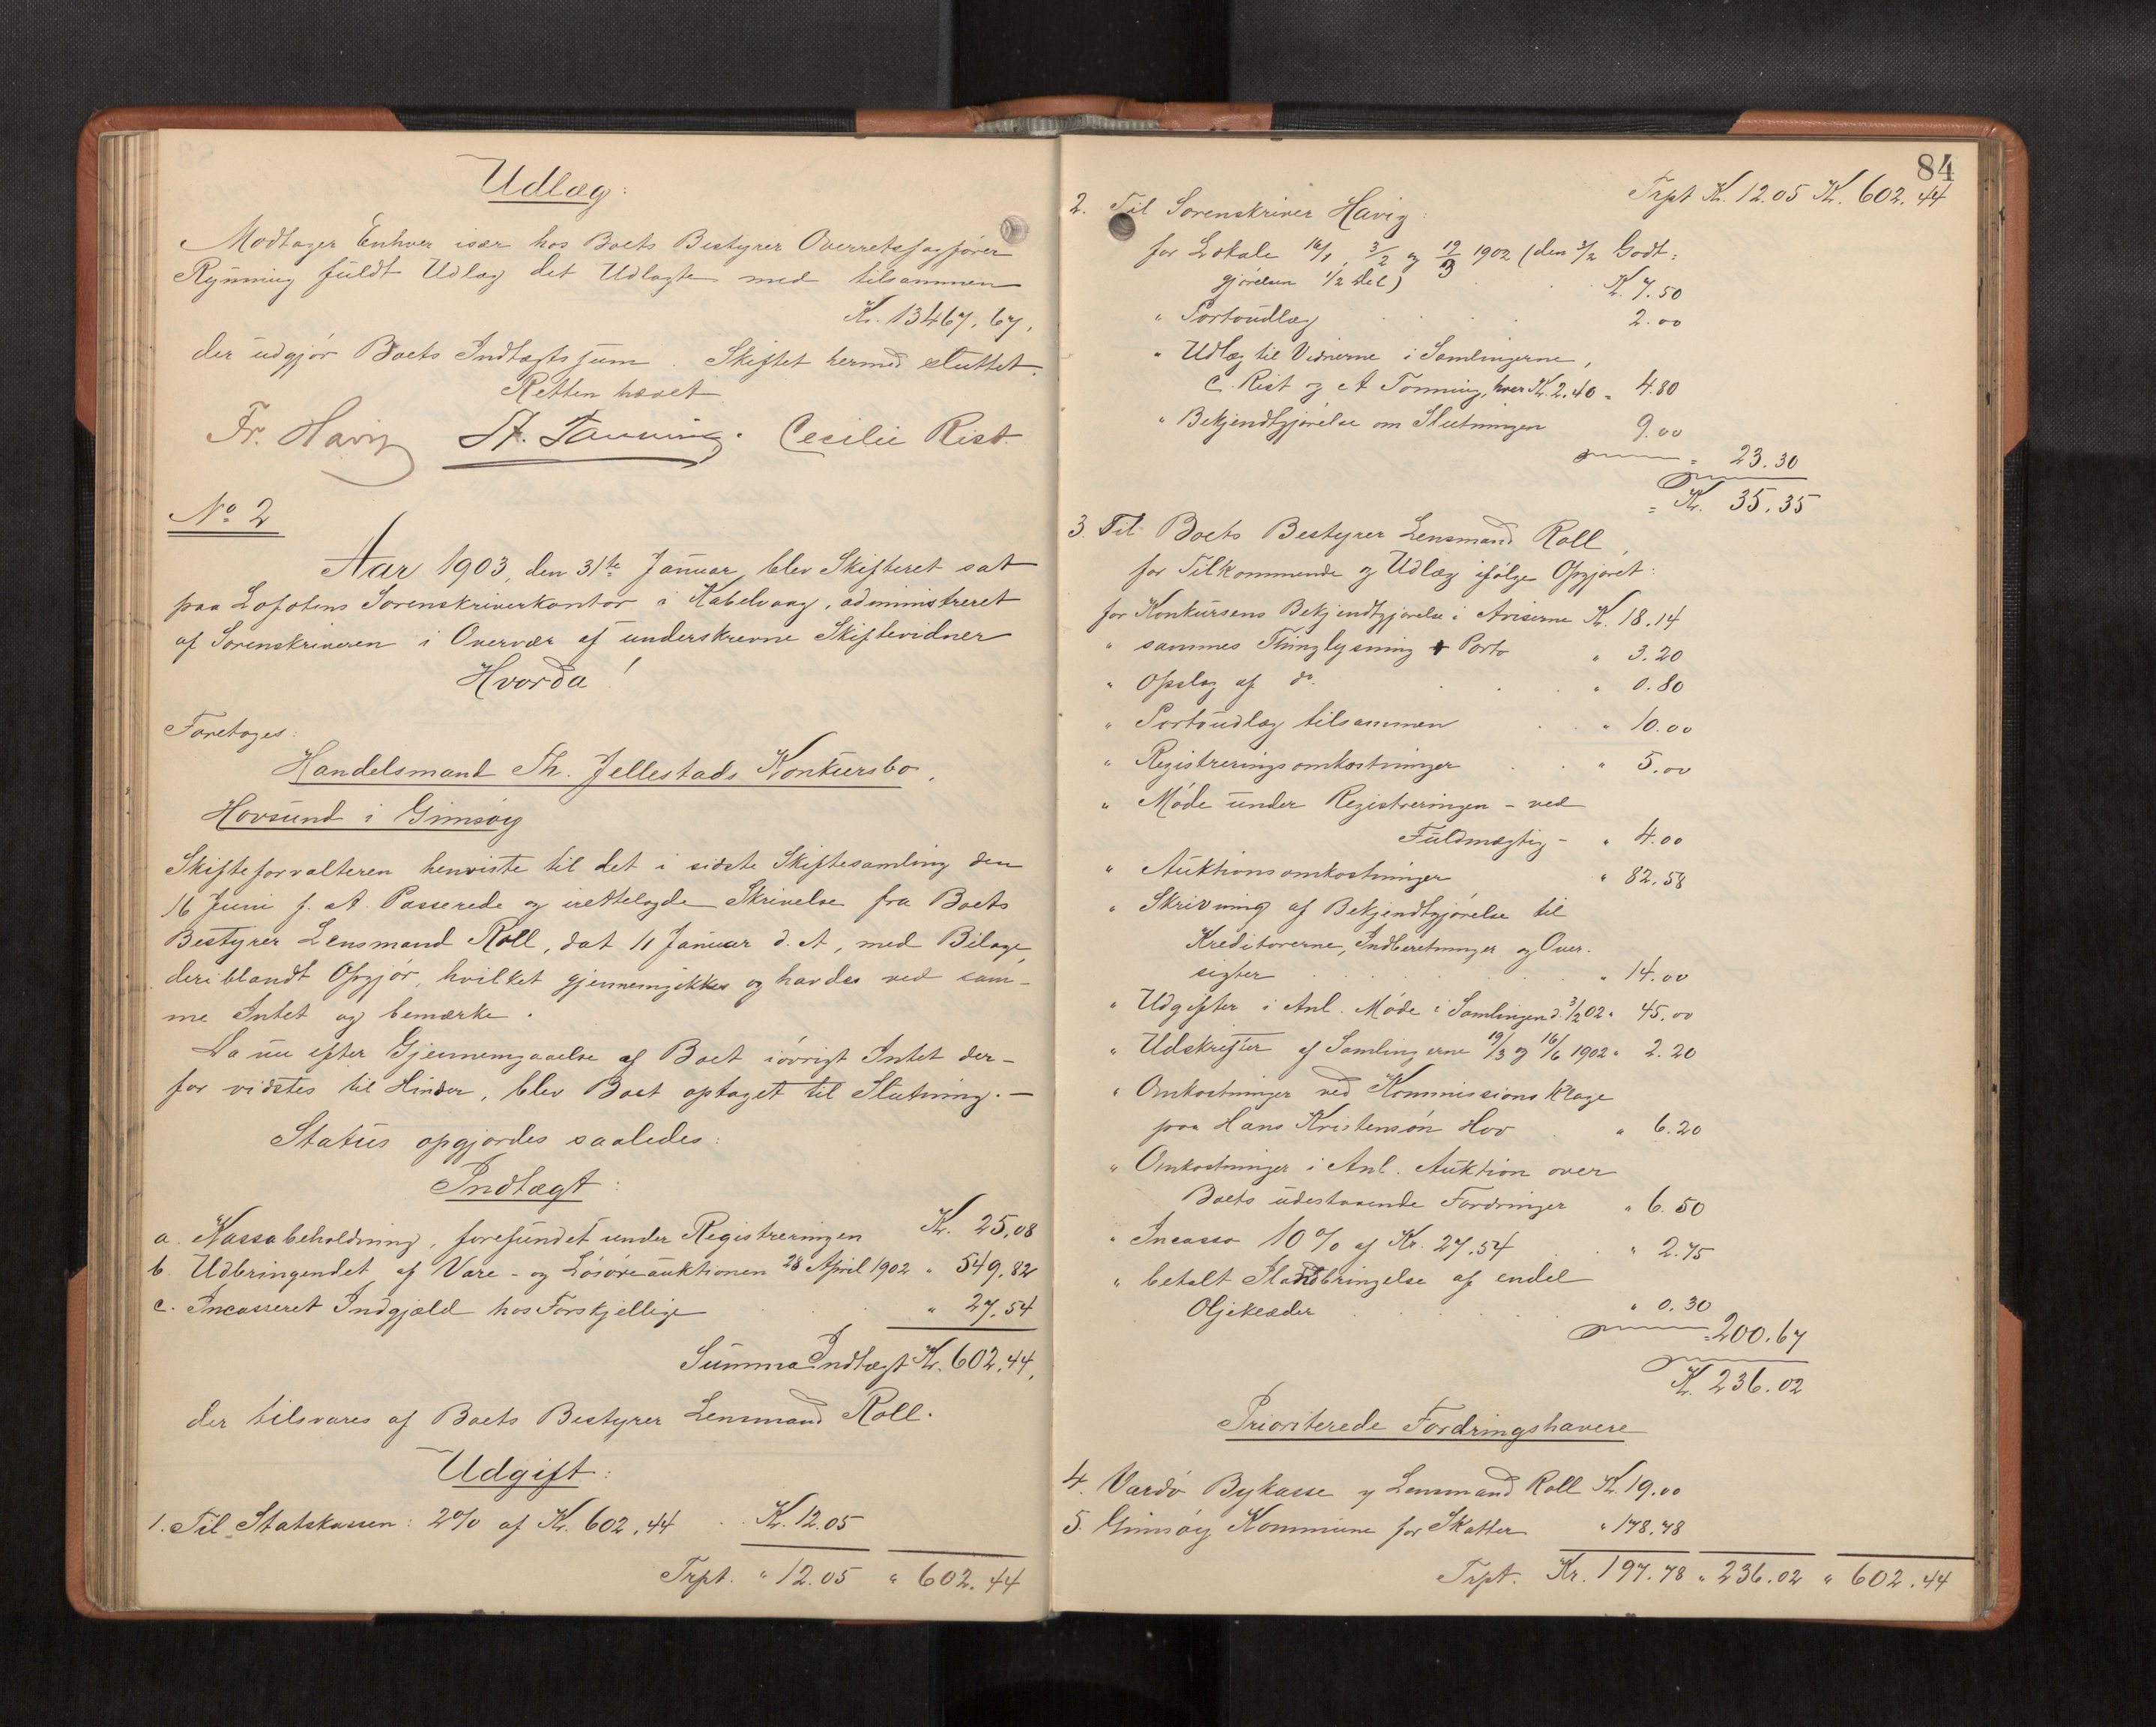 Udlæg:
Modtager Enhver især hos Boets Bestyrer Overretssagfører
Rynning fuldt Udlæg det Udlagte med tilsammen
Kr. 13467,67,
der udgjør Boets Indtægtssum. Skiftet hermed sluttet.
Retten hævet
Fr. Havig St. Tønning. Cecilie Rist.
No 2
Aar 1903, den 31te Januar blev Skifteret sat
paa Lofotens Sorenskriverkontor i Kabelvaag, administreret
af Sorenskriveren i Overvær af underskrevne Skiftevidner
Hvorda!
Foretoges:
Handelsmand Th. Jellestads Konkursbo,
Hovsund i Gimsøy
Skifteforvalteren henviste til det i sidste Skiftesamling den
16 Juni f. A. Passerede og irettelagde Skrivelse fra Boets
Bestyrer Lensmand Roll, dat 11 Januar d. A, med Bilage,
deriblandt Opgjør, hvilket gjennemgikkes og havdes ved sam-
me Intet og bemærke.
Da nu efter Gjennemgaaelse af Boet iøvrigt Intet der-
for vidstes til Hinder, blev Boet optaget til Slutning. —
Status opgjordes saaledes:
Indtægt:
a. Kassabeholdning, forefundet under Registreringen Kr. 25,08
b. Udbringendet af Vare- og Løsøreauktionen 28 April 1902 " 549,82
c. Incasseret Indgjæld hos Forskjellige " 27.54
Summa Indtægt Kr. 602,44,
der tilsvares af Boets Bestyrer Lensmand Roll.
Udgift:
1. Til Statskassen: 2% af Kr. 602,44 Kr. 12.05
Trpt. " 12.05 " 602.44
84
Trpt Kr. 12.05 Kr. 602.44
2. Til Sorenskriver Havig:
for Lokale 16/1, 3/2 og 19/3 1902 (den 3/2 Godt:
gjørelsen 1/2 Del) Kr. 7.50
" Portoudlæg 2.00
" Udlæg til Vidnerne i Samlingerne,
C. Rist og A Tønning, hver Kr. 2.40 = 4.80
" Bekjendtgjørelse om Slutningen 9.00
= 23.30
= Kr. 35.35
3. Til Boets Bestyrer Lensmand Roll,
for Tilkommende og Udlæg ifølge Opgjøret:
for Konkursens Bekjendtgjørelse i Aviserne Kr. 18.14
" sammes Thinglysning + Porto " 3.20
" Opslag af do. " 0.80
" Portoudlæg tilsammen " 10.00
" Registreringsomkostninger " 5.00
" Møde under Registreringen - ved
Fuldmægtig - " 4.00
" Auktionsomkostninger " 82.58
" Skrivning af Bekjendtgjørelse til
Kreditorerne, Indberetninger og Over-
sigter " 14.00
" Udgifter i Anl. Møde i Samlingen d. 3/2 02 " 45.00
" Udskrifter af Samlingerne 19/3 og 16/6 1902 " 2.20
" Omkostninger ved Kommissionsklage
paa Hans Kristensøn Hov " 6.20
" Omkostninger i Anl. Auktion over
Boets udestaaende Fordringer " 6.50
" Incasso 10% af Kr. 27.54 " 2.75
" betalt Standbringelse af endel
Oljeklæder " 0.30
= 200.67
Kr. 236.02
Prioriterede Fordringshavere
4. Vardø Bykasse v Lensmand Roll Kr. 19.00
5. Gimsøy Kommune for Skatter " 178.78
Trpt. Kr. 197.78 " 236.02 " 602.44